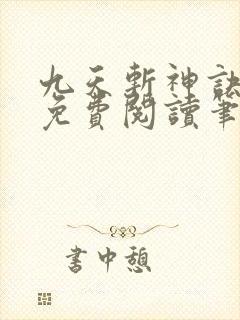 九天斬神訣
免費閱讀筆
書中憩